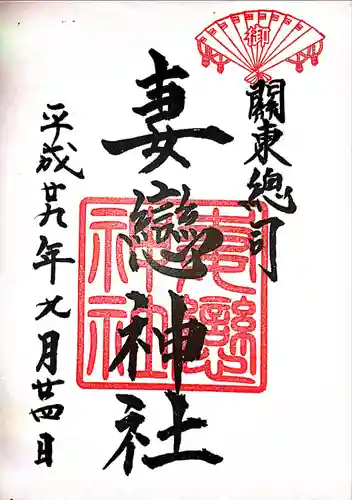 御
關東總司
妻戀神社
妻戀神社
平成廿九年九月廿四日